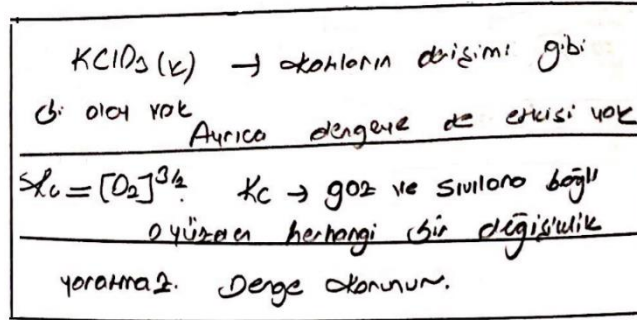 KClO3(k) → katıların derişimi gibi
bi olay yok
Ayrıca dengeye de etkisi yok
Kc = [O2]^3/2. Kc → gaz ve sıvılara bağlı
o yüzden herhangi bir değişiklik
yaratmaz. Denge korunur.